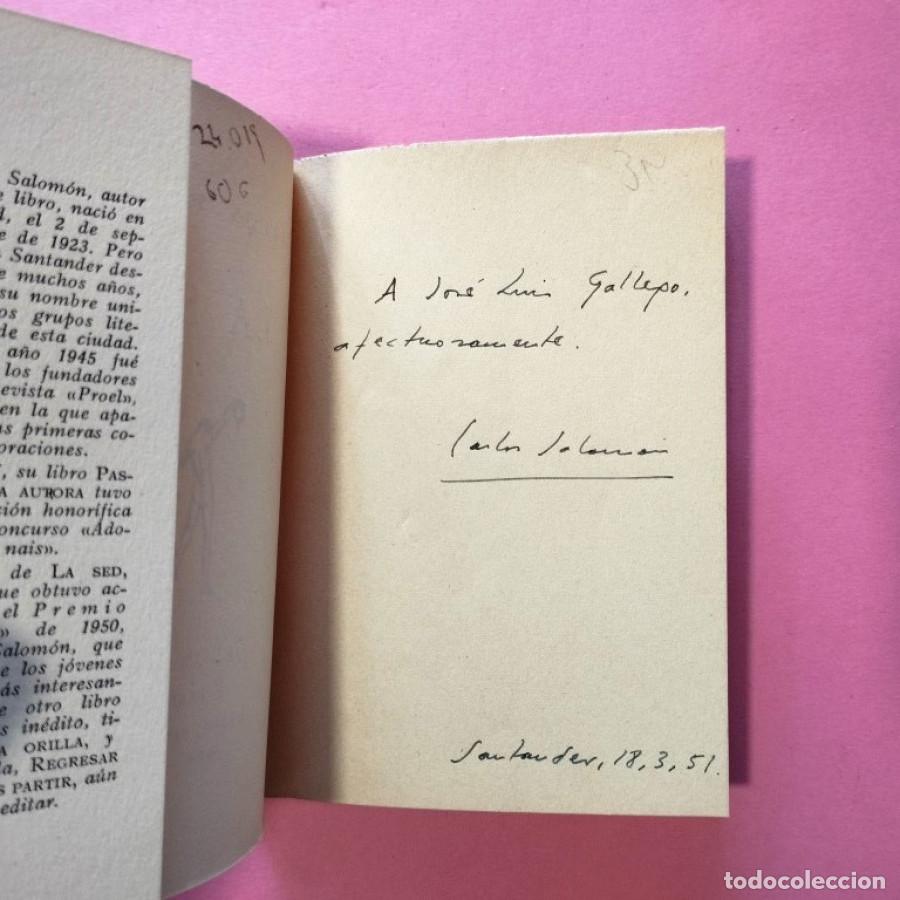 Salomón, autor
libro, nació en
el 2 de sep-
de 1923. Pero
Santander des-
muchos años,
su nombre uni-
os grupos lite-
de esta ciudad.
año 1945 fué
los fundadores
evista «Proel»,
en la que apa-
as primeras co-
oraciones.
su libro PAS-
A AURORA tuvo
ción honorífica
oncurso «Ado-
nais».
de LA SED,
que obtuvo ac-
el Premio
» de 1950,
Salomón, que
e los jóvenes
ás interesan-
e otro libro
s inédito, ti-
A ORILLA, y
la, REGRESAR
PARTIR, aún
editar.
24.019
60 G
A José Luis Gallego,
afectuosamente.
Carlos Salomón
Santander, 18, 3, 51.
todocoleccion